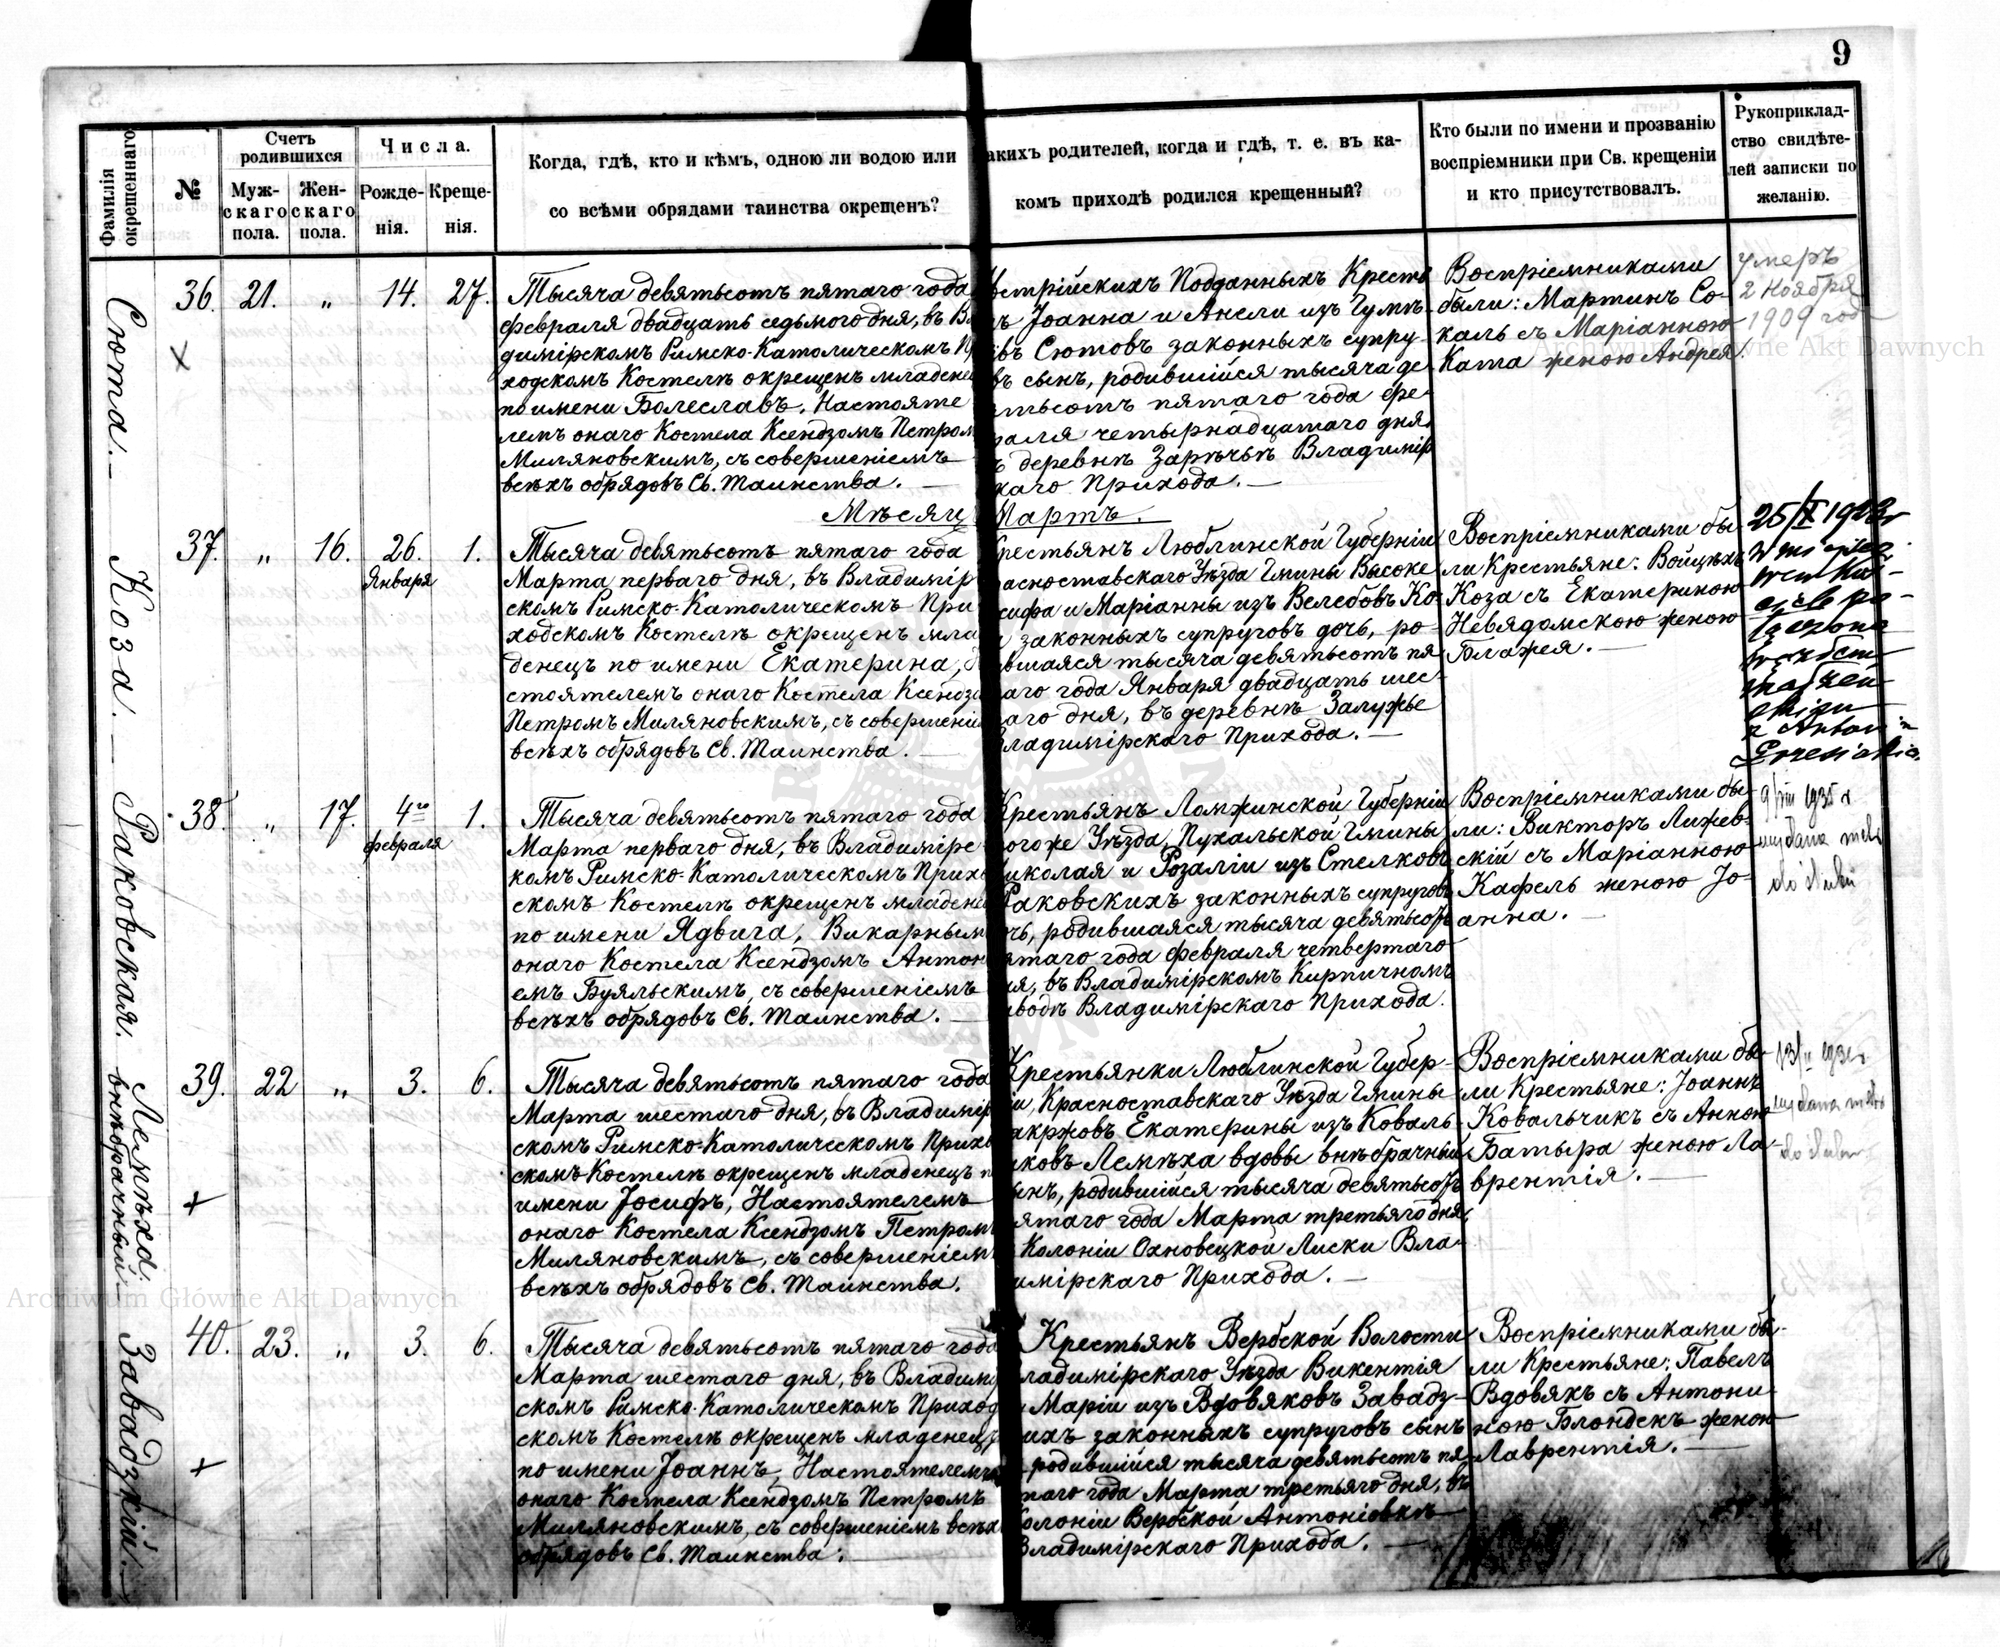 9
Фамилія окрещеннаго.
№
Счетъ родившихся
Мужскаго пола.
Женскаго пола.
Числа.
Рожденія.
Крещенія.
Когда, гдѣ, кто и кѣмъ, одною ли водою или
со всѣми обрядами таинства окрещенъ?
акихъ родителей, когда и гдѣ, т. е. въ ка-
комъ приходѣ родился крещенный?
Кто были по имени и прозванію
воспріемники при Св. крещеніи
и кто присутствовалъ.
Рукоприклад-
ство свидѣте-
лей записки по
желанію.
Сюта.
36. 21. „ 14. 27.
Тысяча девятьсотъ пятаго года
февраля двадцать седьмого дня, въ Вла
димірскомъ Римско-Католическомъ Пр
ходскомъ Костелѣ окрещенъ младене
по имени Болеславъ, Настояте
лемъ онаго Костела Ксендзомъ Петром
Миляновскимъ, съ совершеніемъ
всѣхъ обрядовъ Св. Таинства.
стрійскихъ Подданныхъ Кресть
ъ Іоанна и Анели изъ
въ Сютовъ законныхъ супру-
въ сынъ, родившійся тысяча де
ятьсотъ пятаго года фе-
раля четырнадцатаго дня,
ъ деревнѣ Зарѣчьѣ Владимір
скаго Прихода.
Воспріемниками
были: Мартинъ Со-
каль съ Маріанною
Ката женою Андрея.
умеръ
2 Ноября
1909 год
Мѣсяц Мартъ.
Коза.
37. „ 16. 26. Января 1.
Тысяча девятьсотъ пятаго года
Марта перваго дня, въ Владимір
скомъ Римско-Католическомъ При
ходскомъ Костелѣ окрещенъ мла
денецъ по имени Екатерина,
стоятелемъ онаго Костела Ксендзо
Петромъ Миляновскимъ, съ совершені
всѣхъ обрядовъ Св. Таинства.
рестьянъ Люблинской Губерніи
расноставскаго Уѣзда Гмины Высоке
сифа и Маріанны изъ Велебовъ Ко-
законныхъ супруговъ дочь, ро-
ившаяся тысяча девятьсотъ пя
таго года Января двадцать шес-
таго дня, въ деревнѣ Залужье
Владимірскаго Прихода.
Воспріемниками бы-
ли Крестьяне: Войцѣхъ
Коза съ Екатериною
Невядомскою женою
Блажея.
Раковская.
38. „ 17. 4го февраля 1.
Тысяча девятьсотъ пятаго года
Марта перваго дня, въ Владимірс-
комъ Римско-Католическомъ Прихо
скомъ Костелѣ окрещенъ младене
по имени Ядвига, Викарнымъ
онаго Костела Ксендзомъ Антон
емъ Буяльскимъ, съ совершеніемъ
всѣхъ обрядовъ Св. Таинства.
Крестьянъ Ломжинской Губерніи
тогоже Уѣзда, Пухальской Гмины
Николая и Розаліи изъ Стелковъ
Раковскихъ законныхъ супруговъ
очь, родившаяся тысяча девятьсотъ
пятаго года февраля четвертаго
ня, въ Владимірскомъ Кирпичномъ
аводѣ Владимірскаго Прихода.
Воспріемниками бы-
ли: Викторъ Лижев-
скій съ Маріанною
Кафель женою Іо-
анна.
wydana metr
do ślubu
Лемѣха.
внѣбрачный
39. 22 „ 3. 6.
Тысяча девятьсотъ пятаго года
Марта шестаго дня, въ Владимір
скомъ Римско-Католическомъ Прихо
скомъ Костелѣ окрещенъ младенецъ п
имени Іосифъ, Настоятелемъ
онаго Костела Ксендзомъ Петромъ
Миляновскимъ, съ совершеніем
всѣхъ обрядовъ Св. Таинства.
Крестьянки Люблинской Губер-
іи, Красноставскаго Уѣзда Гмины
акржовъ Екатерины изъ Коваль-
иковъ Лемѣха вдовы внѣбрачный
ынъ, родившійся тысяча девятьсотъ
ятаго года Марта третьяго дня,
Колоніи Охновецкой Лиски Вла-
имірскаго Прихода.
Воспріемниками бы-
ли Крестьяне: Іоаннъ
Ковальчикъ съ Анною
Батыра женою Ла-
врентія.
wydana metr
do ślubu
Завадзкій.
40. 23. „ 3. 6.
Тысяча девятьсотъ пятаго года
Марта шестаго дня, въ Владимі
скомъ Римско-Католическомъ Приход
скомъ Костелѣ окрещенъ младенецъ
по имени Іоаннъ, Настоятелемъ
онаго Костела Ксендзомъ Петромъ
Миляновскимъ, съ совершеніемъ всѣхъ
обрядовъ Св. Таинства.
Крестьянъ Вербской Волости
ладимірскаго Уѣзда Викентія
Маріи изъ Вдовяковъ Завадз-
ихъ законныхъ супруговъ сынъ
родившійся тысяча девятьсотъ пя-
таго года Марта третьяго дня, въ
Колоніи Вербской Антоніовкѣ
Владимірскаго Прихода.
Воспріемниками бы-
ли Крестьяне: Павелъ
Вдовякъ съ Антони-
ною Блондекъ женою
Лаврентія.
Archiwum Główne Akt Dawnych
Archiwum Główne Akt Dawnych